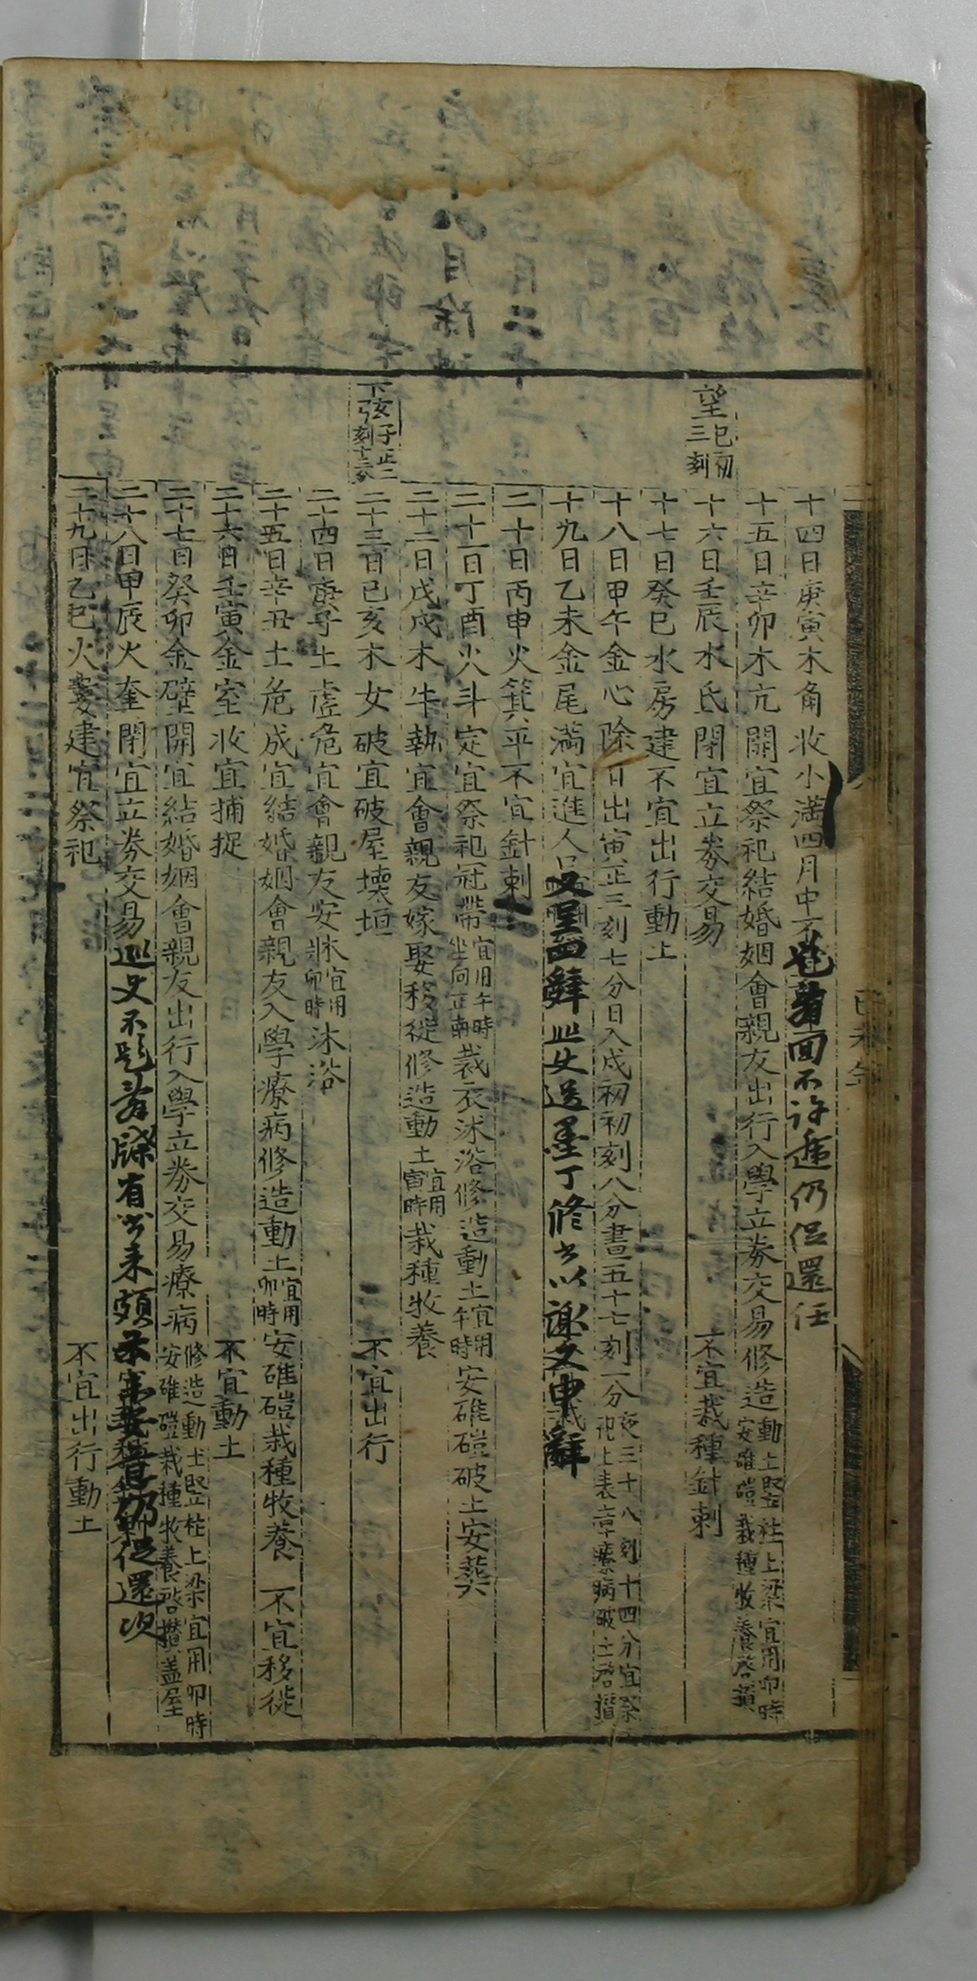 己未年
望巳初三刻
十四日庚寅木角收小滿四月中不
面不許遞仍促還任
十五日辛卯木亢開宜祭祀結婚姻會親友出行入學立券交易修造動土竪柱上梁宜用卯時安碓磑栽種牧養啓攢
十六日壬辰水氐閉宜立券交易 不宜栽種針刺
十七日癸巳水房建不宜出行動土
十八日甲午金心除日出寅正三刻七分日入戌初初刻八分晝五十七刻一分夜三十八刻十四分宜祭祀上表章療病破土啓攢
十九日乙未金尾滿宜進人口
又呈西辭此丈送墨丁修书以謝之申辭
二十日丙申火箕平不宜針刺
二十一日丁酉火斗定宜祭祀冠帶宜用午時坐向正南裁衣沐浴修造動土宜用午時安碓磑破土安葬
二十二日戊戌木牛執宜會親友嫁娶移徙修造動土宜用寅時栽種牧養
下弦子正二刻十三分
二十三日己亥木女破宜破屋壞垣 不宜出行
二十四日庚子土虛危宜會親友安牀宜用卯時沐浴
二十五日辛丑土危成宜結婚姻會親友入學療病修造動土宜用卯時安碓磑栽種牧養 不宜移徙
二十六日壬寅金室收宜捕捉 不宜動土
二十七日癸卯金壁開宜結婚姻會親友出行入學立券交易療病修造動土竪柱上梁宜用卯時安碓磑栽種牧養啓攢蓋屋
二十八日甲辰火奎閉宜立券交易
巡史不題許牒有
仍促還次
二十九日乙巳火婁建宜祭祀 不宜出行動土